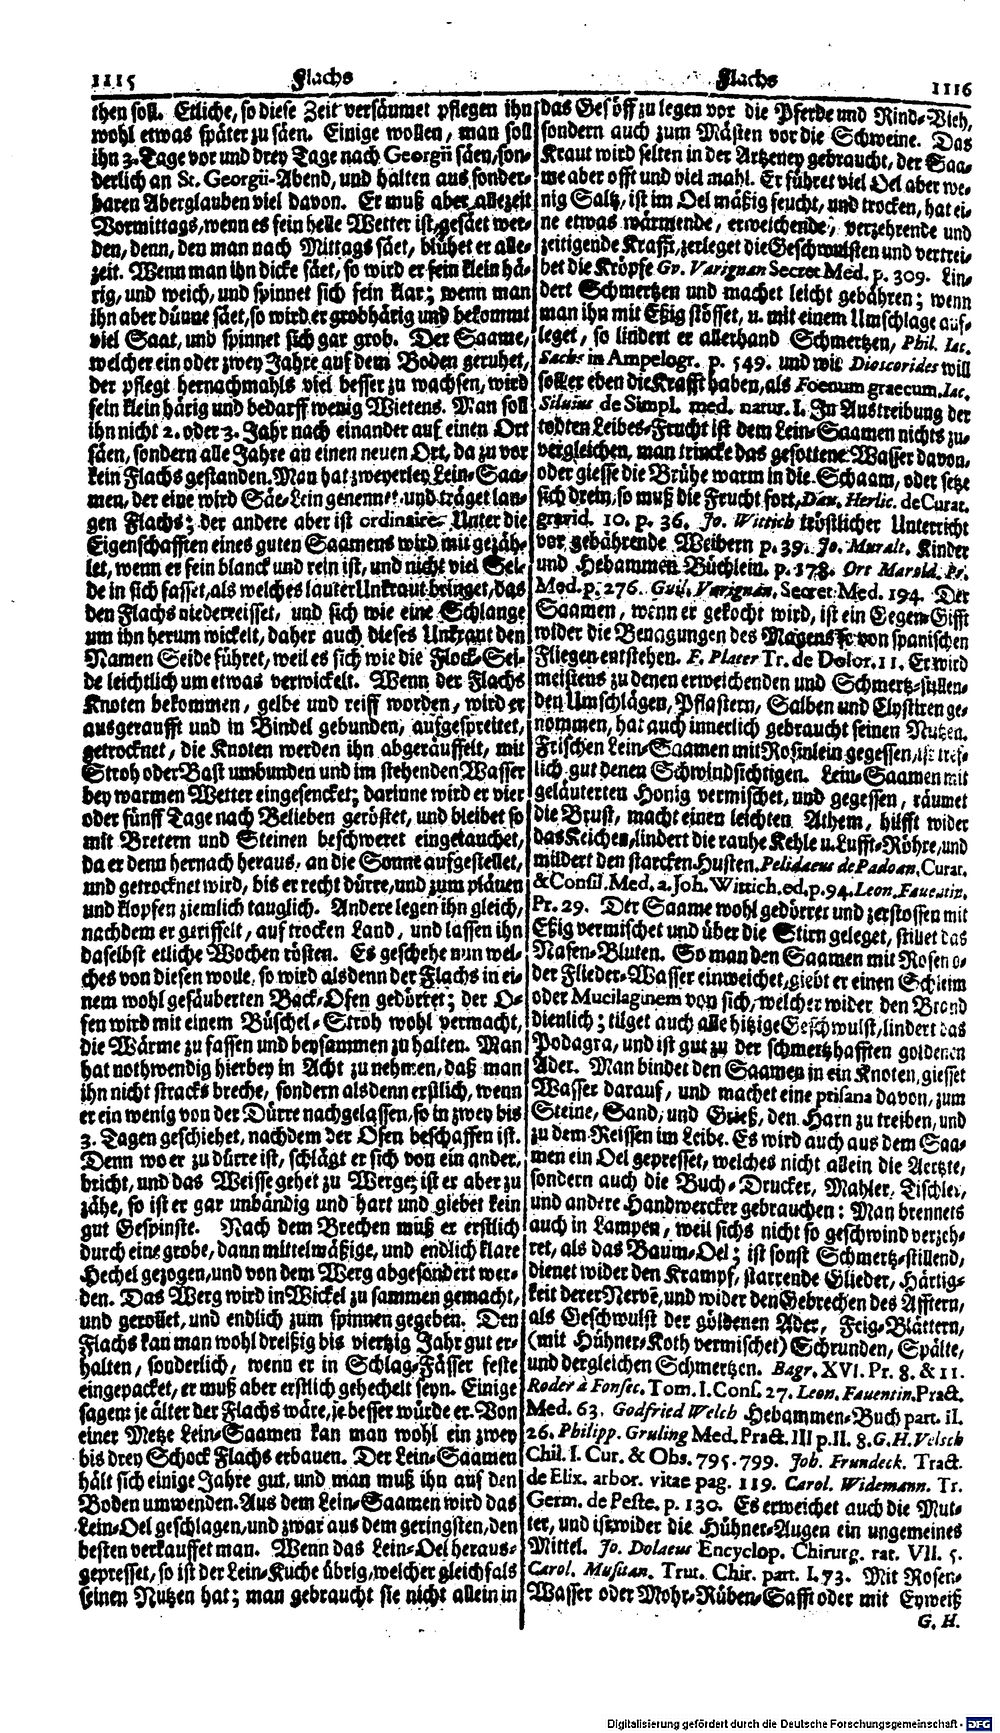 1115 Flachs
then soll. Etliche, so diese Zeit versäumet pflegen ihn
wohl etwas später zu säen. Einige wollen, man soll
ihn 3. Tage vor und drey Tage nach Georgii säen, son-
derlich an St. Georgii-Abend, und halten aus sonder-
baren Aberglauben viel davon. Er muß aber allezeit
Vormittags, wenn es fein helle Wetter ist, gesäet wer-
den, denn, den man nach Mittags säet, blühet er alle-
zeit. Wenn man ihn dicke säet, so wird er fein klein hä-
rig, und weich, und spinnet sich fein klar; wenn man
ihn aber dünne säet, so wird er grobhärig und bekommt
viel Saat, und spinnet sich gar grob. Der Saame,
welcher ein oder zwey Jahre auf dem Boden geruhet,
der pflegt hernachmahls viel besser zu wachsen, wird
fein klein härig und bedarff wenig Wietens. Man soll
ihn nicht 2. oder 3. Jahr nach einander auf einen Ort
säen, sondern alle Jahre an einen neuen Ort, da zu vor
kein Flachs gestanden. Man hat zweyerley Lein-Saa-
men, der eine wird Säe-Lein genennet und träget lan-
gen Flachs; der andere aber ist ordinaire. Unter die
Eigenschafften eines guten Saamens wird mit gezäh-
let, wenn er fein blanck und rein ist, und nicht viel Sei-
de in sich fasset, als welches lauter Unkraut bringet, das
den Flachs niederreisset, und sich wie eine Schlange
um ihn herum wickelt, daher auch dieses Unkraut den
Namen Seide führet, weil es sich wie die Flock-Sei-
de leichtlich um etwas verwickelt. Wenn der Flachs
Knoten bekommen, gelbe und reiff worden, wird er
ausgeraufft und in Bindel gebunden, aufgespreitet,
getrocknet, die Knoten werden ihn abgeräuffelt, mit
Stroh oder Bast umbunden und im stehenden Wasser
bey warmen Wetter eingesencket; darinne wird er vier
oder fünff Tage nach Belieben geröstet, und bleibet so
mit Bretern und Steinen beschweret eingetauchet,
da er denn hernach heraus, an die Sonne aufgestellet,
und getrocknet wird, bis er recht dürre, und zum pläuen
und klopfen ziemlich tauglich. Andere legen ihn gleich,
nachdem er geriffelt, auf trocken Land, und lassen ihn
daselbst etliche Wochen rösten. Es geschehe nun wel-
ches von diesen wolle, so wird alsdenn der Flachs in ei-
nem wohl gesäuberten Back-Ofen gedörret; der O-
fen wird mit einem Büschel-Stroh wohl vermacht,
die Wärme zu fassen und beysammen zu halten. Man
hat nothwendig hierbey in Acht zu nehmen, daß man
ihn nicht stracks breche, sondern alsdenn erstlich, wenn
er ein wenig von der Dürre nachgelassen, so in zwey bis
3. Tagen geschiehet, nachdem der Ofen beschaffen ist.
Denn wo er zu dürre ist, schlägt er sich von ein ander,
bricht, und das Weisse gehet zu Werge; ist er aber zu
zähe, so ist er gar unbändig und hart und giebet kein
gut Gespinste. Nach dem Brechen muß er erstlich
durch eine grobe, dann mittelmäßige, und endlich klare
Hechel gezogen, und von dem Werg abgesondert wer-
den. Das Werg wird in Wickel zu sammen gemacht,
und gerollet, und endlich zum spinnen gegeben. Den
Flachs kan man wohl dreißig bis viertzig Jahr gut er-
halten, sonderlich, wenn er in Schlag-Fässer feste
eingepacket, er muß aber erstlich gehechelt seyn. Einige
sagen: je älter der Flachs wäre, je besser würde er. Von
einer Metze Lein-Saamen kan man wohl ein zwey
bis drey Schock Flachs erbauen. Der Lein-Saamen
hält sich einige Jahre gut, und man muß ihn auf den
Boden umwenden. Aus dem Lein-Saamen wird das
Lein-Oel geschlagen, und zwar aus dem geringsten, den
besten verkauffet man. Wenn das Lein-Oel heraus-
gepresset, so ist der Lein-Kuche übrig, welcher gleichfals
seinen Nutzen hat; man gebraucht sie nicht allein in
Flachs 1116
das Gesöff zu legen vor die Pferde und Rind-Vieh,
sondern auch zum Mästen vor die Schweine. Das
Kraut wird selten in der Artzeney gebraucht, der Saa-
me aber offt und viel mahl. Er führet viel Oel aber we-
nig Saltz, ist im Oel mäßig feucht, und trocken, hat ei-
ne etwas wärmende, erweichende, verzehrende und
zeitigende Krafft, zerleget die Geschwulsten und vertrei-
bet die Kröpfe Gv. Varignan Secret Med. p. 309. Lin-
dert Schmertzen und machet leicht gebähren; wenn
man ihn mit Eßig stösset, u. mit einem Umschlage auf-
leget, so lindert er allerhand Schmertzen, Phil. Iac.
Sachs in Ampelogr. p. 549. und wie Dioscorides will
soll er eben die Krafft haben, als Foenum graecum. Iac.
Siluius de Simpl. med. natur. I. In Austreibung der
todten Leibes-Frucht ist dem Lein-Saamen nichts zu-
vergleichen, man trincke das gesottene Wasser davon,
oder giesse die Brühe warm in die Schaam, oder setze
sich drein, so muß die Frucht fort, Dav. Herlic. de Curat.
gravid. 10. p. 36. Jo. Wittich tröstlicher Unterricht
vor gebährende Weibern p. 39. Jo. Muralt. Kinder
und Hebammen Büchlein. p. 178. Ort Marold. Pr.
Med. p. 276. Guil. Varignan. Secret Med. 194. Der
Saamen, wenn er gekocht wird, ist ein Gegen-Gifft
wider die Benagungen des Magens so von spanischen
Fliegen entstehen. F. Plater Tr. de Dolor. 11. Er wird
meistens zu denen erweichenden und Schmertz-stillen-
den Umschlägen, Pflastern, Salben und Clystiren ge-
nommen, hat auch innerlich gebraucht seinen Nutzen.
Frischen Lein-Saamen mit Rosinlein gegessen, ist tref-
lich gut denen Schwindsichtigen. Lein-Saamen mit
geläuterten Honig vermischet, und gegessen, räumet
die Brust, macht einen leichten Athem, hilfft wider
das Keichen, lindert die rauhe Kehle u. Lufft-Röhre, und
mildert den starcken Husten. Pelidaeus de Padoan. Curat.
& Consil. Med. a. Joh. Wittich. ed. p. 94. Leon. Faventin.
Pr. 29. Der Saame wohl gedörret und zerstossen mit
Eßig vermischet und über die Stirn geleget, stillet das
Nasen-Bluten. So man den Saamen mit Rosen o-
der Flieder-Wasser einweichet, giebt er einen Schleim
oder Mucilaginem von sich, welcher wider den Brand
dienlich; tilget auch alle hitzige Geschwulst, lindert das
Podagra, und ist gut zu der schmertzhafften goldenen
Ader. Man bindet den Saamen in ein Knoten, giesset
Wasser darauf, und machet eine ptisana davon, zum
Steine, Sand, und Grieß, den Harn zu treiben, und
zu dem Reissen im Leibe. Es wird auch aus dem Saa-
men ein Oel gepresset, welches nicht allein die Aertzte,
sondern auch die Buch-Drucker, Mahler, Tischler,
und andere Handwercker gebrauchen: Man brennets
auch in Lampen, weil sichs nicht so geschwind verzeh-
ret, als das Baum-Oel; ist sonst Schmertz-stillend,
dienet wider den Krampf, starrende Glieder, Härtig-
keit derer Nervē, und wider den Gebrechen des Afftern,
als Geschwulst der göldenen Ader, Feig-Blättern,
(mit Hühner-Koth vermischet) Schrunden, Spälte,
und dergleichen Schmertzen. Bagr. XVI. Pr. 8. & 11.
Roder à Fonsec. Tom. I. Cons. 27. Leon. Faventin. Pract.
Med. 63. Godfried Welch Hebammen-Buch part. II.
26. Philipp. Gruling Med. Pract. III p. II. 8. G. H. Velsch
Chil. I. Cur. & Obs. 795. 799. Joh. Frundeck. Tract.
de Elix. arbor. vitae pag. 119. Carol. Widemann. Tr.
Germ. de Peste. p. 130. Es erweichet auch die Mut-
ter, und ist wider die Hühner-Augen ein ungemeines
Mittel. Jo. Dolaeus Encyclop. Chirurg. rat. VII. 5.
Carol. Musitan. Trut. Chir. part. I. 73. Mit Rosen-
Wasser oder Mohr-Rüben-Safft oder mit Eyweiß
G. H.
Digitalisierung gefördert durch die Deutsche Forschungsgemeinschaft - DFG